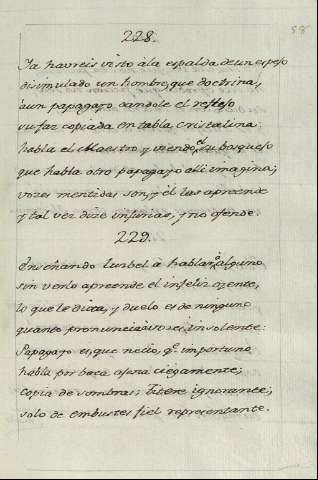 58
228.
Ya havreis visto à la espalda de un espejo
disimulado un hombre, que doctrina,
à un papagayo dandole el reflejo
su faz copiada en tabla cristalina:
habla el Maestro, y viendo el su bosquejo
que habla otro papagayo alli imagina;
vozes mentidas son, y él las aprende
y tal vez dize injurias, y no ofende.
229.
Enseñando Luzbel à hablar à alguno
sin verlo aprende el infeliz oyente,
lo que le dicta, y duelo es de ninguno
quanto pronuncia à vozes insolente:
Papagayo es, que necio, q.e importuno
habla por boca agena ciegamente;
copia de sombras; titere ignorante;
solo de embustes fiel representante.